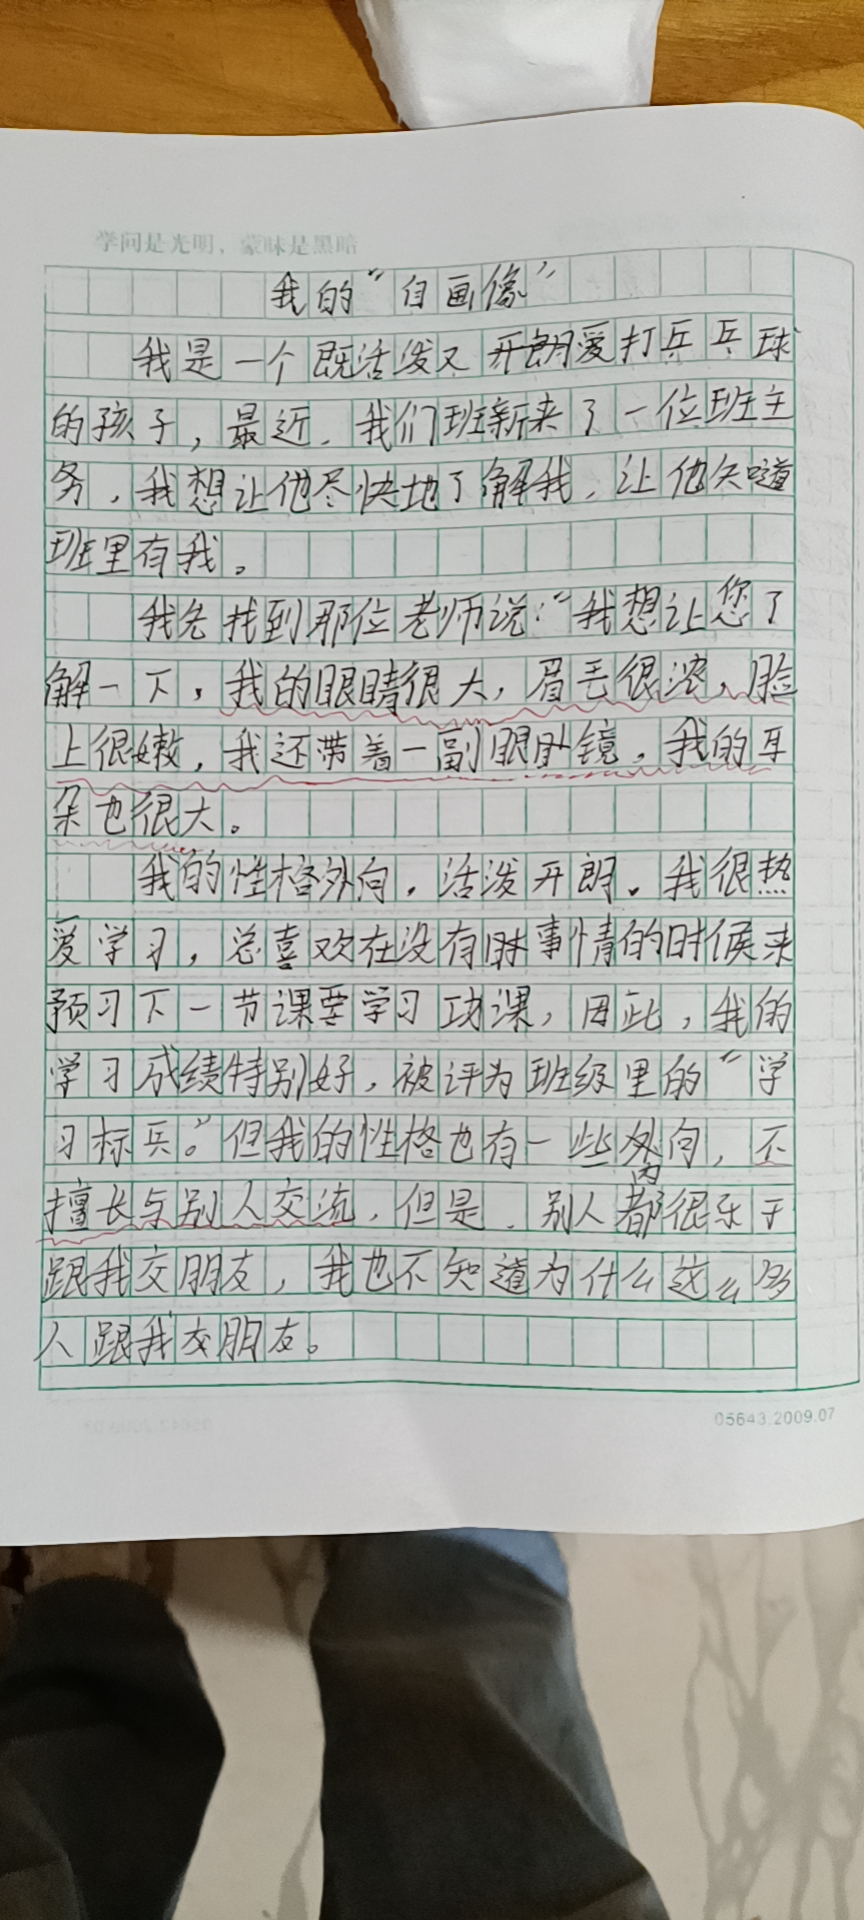 学问是光明，蒙昧是黑暗
我的“自画像”
我是一个既活泼又开朗爱打乒乓球
的孩子，最近，我们班新来了一位班主
务，我想让他尽快地了解我，让他知道
班里有我。
我先找到那位老师说：“我想让您了
解一下，我的眼睛很大，眉毛很浓，脸
上很嫩，我还带着一副眼镜，我的耳
朵也很大。
我的性格外向，活泼开朗。我很热
爱学习，总喜欢在没有事情的时候来
预习下一节课要学习功课，因此，我的
学习成绩特别好，被评为班级里的“学
习标兵。”但我的性格也有一些内向，不
擅长与别人交流，但是，别人都很乐于
跟我交朋友，我也不知道为什么这么多
人跟我交朋友。
05643.2009.07